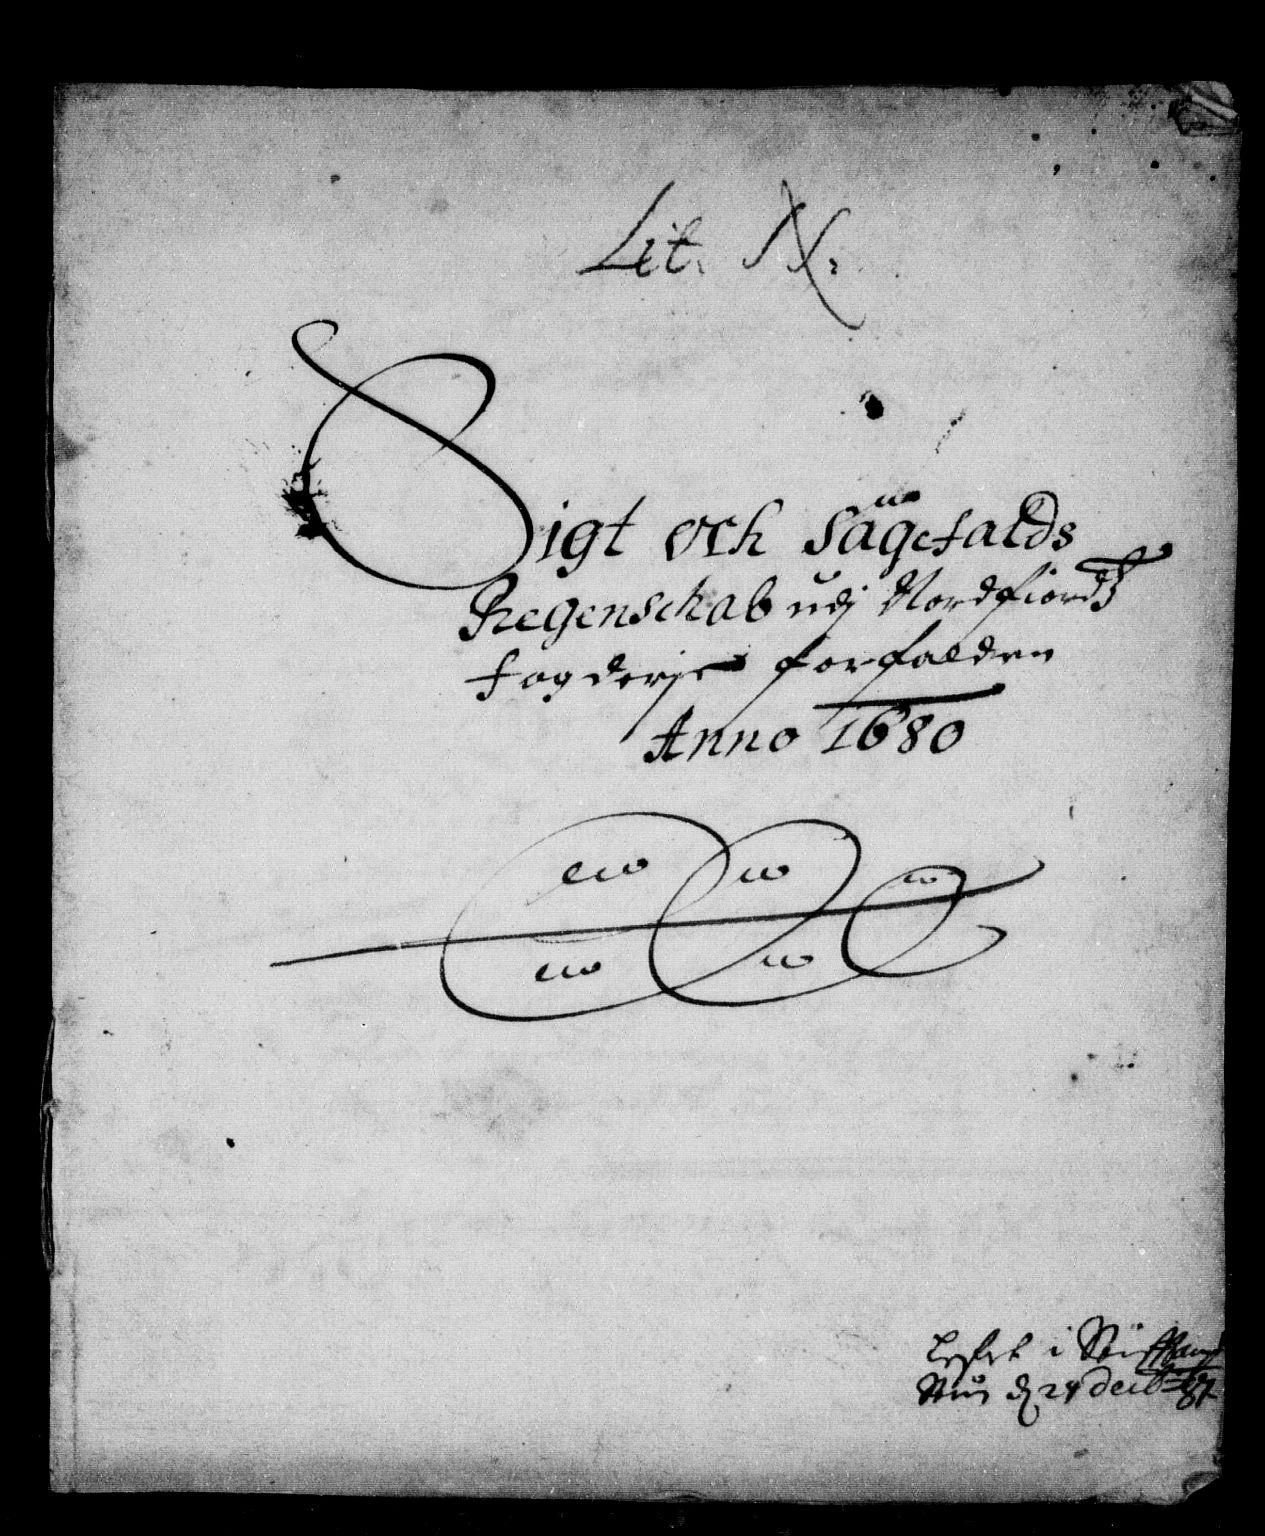 Lit. N:
Sigt och Sagefalds
Regenschab udj Nordfiords
fogderje forfalden
Anno 1680
Lefert i
d 24 decb